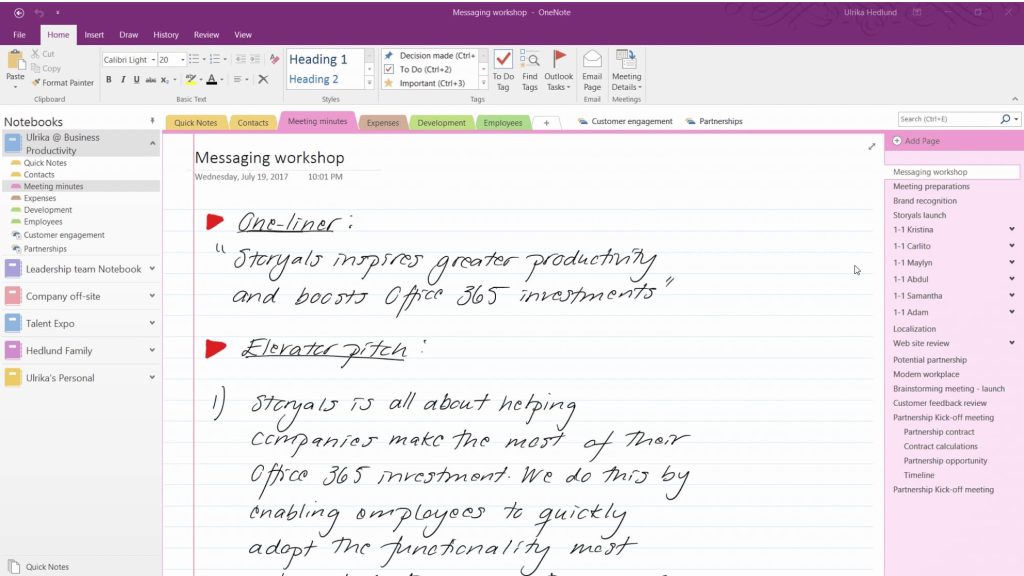 Messaging workshop - OneNote
Ulrika Hedlund
File Home Insert Draw History Review View
Paste
Cut
Copy
Format Painter
Clipboard
Calibri Light 20
B I U abc X₂ A
Basic Text
Heading 1
Heading 2
Styles
Decision made (Ctrl+
To Do (Ctrl+2)
Important (Ctrl+3)
Tags
To Do Tag
Find Tags
Outlook Tasks
Email Page
Email
Meeting Details
Meetings
Notebooks
Ulrika @ Business
Productivity
Quick Notes
Contacts
Meeting minutes
Expenses
Development
Employees
Customer engagement
Partnerships
Leadership team Notebook
Company off-site
Talent Expo
Hedlund Family
Ulrika's Personal
Quick Notes
Quick Notes Contacts Meeting minutes Expenses Development Employees + Customer engagement Partnerships
Search (Ctrl+E)
Messaging workshop
Wednesday, July 19, 2017 10:01 PM
One-liner :
"Storyals inspires greater productivity
and boosts Office 365 investments"
Elevator pitch :
1) Storyals is all about helping
companies make the most of their
Office 365 investment. We do this by
enabling employees to quickly
adopt the functionality most
Add Page
Messaging workshop
Meeting preparations
Brand recognition
Storyals launch
1-1 Kristina
1-1 Carlito
1-1 Maylyn
1-1 Abdul
1-1 Samantha
1-1 Adam
Localization
Web site review
Potential partnership
Modern workplace
Brainstorming meeting - launch
Customer feedback review
Partnership Kick-off meeting
Partnership contract
Contract calculations
Partnership opportunity
Timeline
Partnership Kick-off meeting